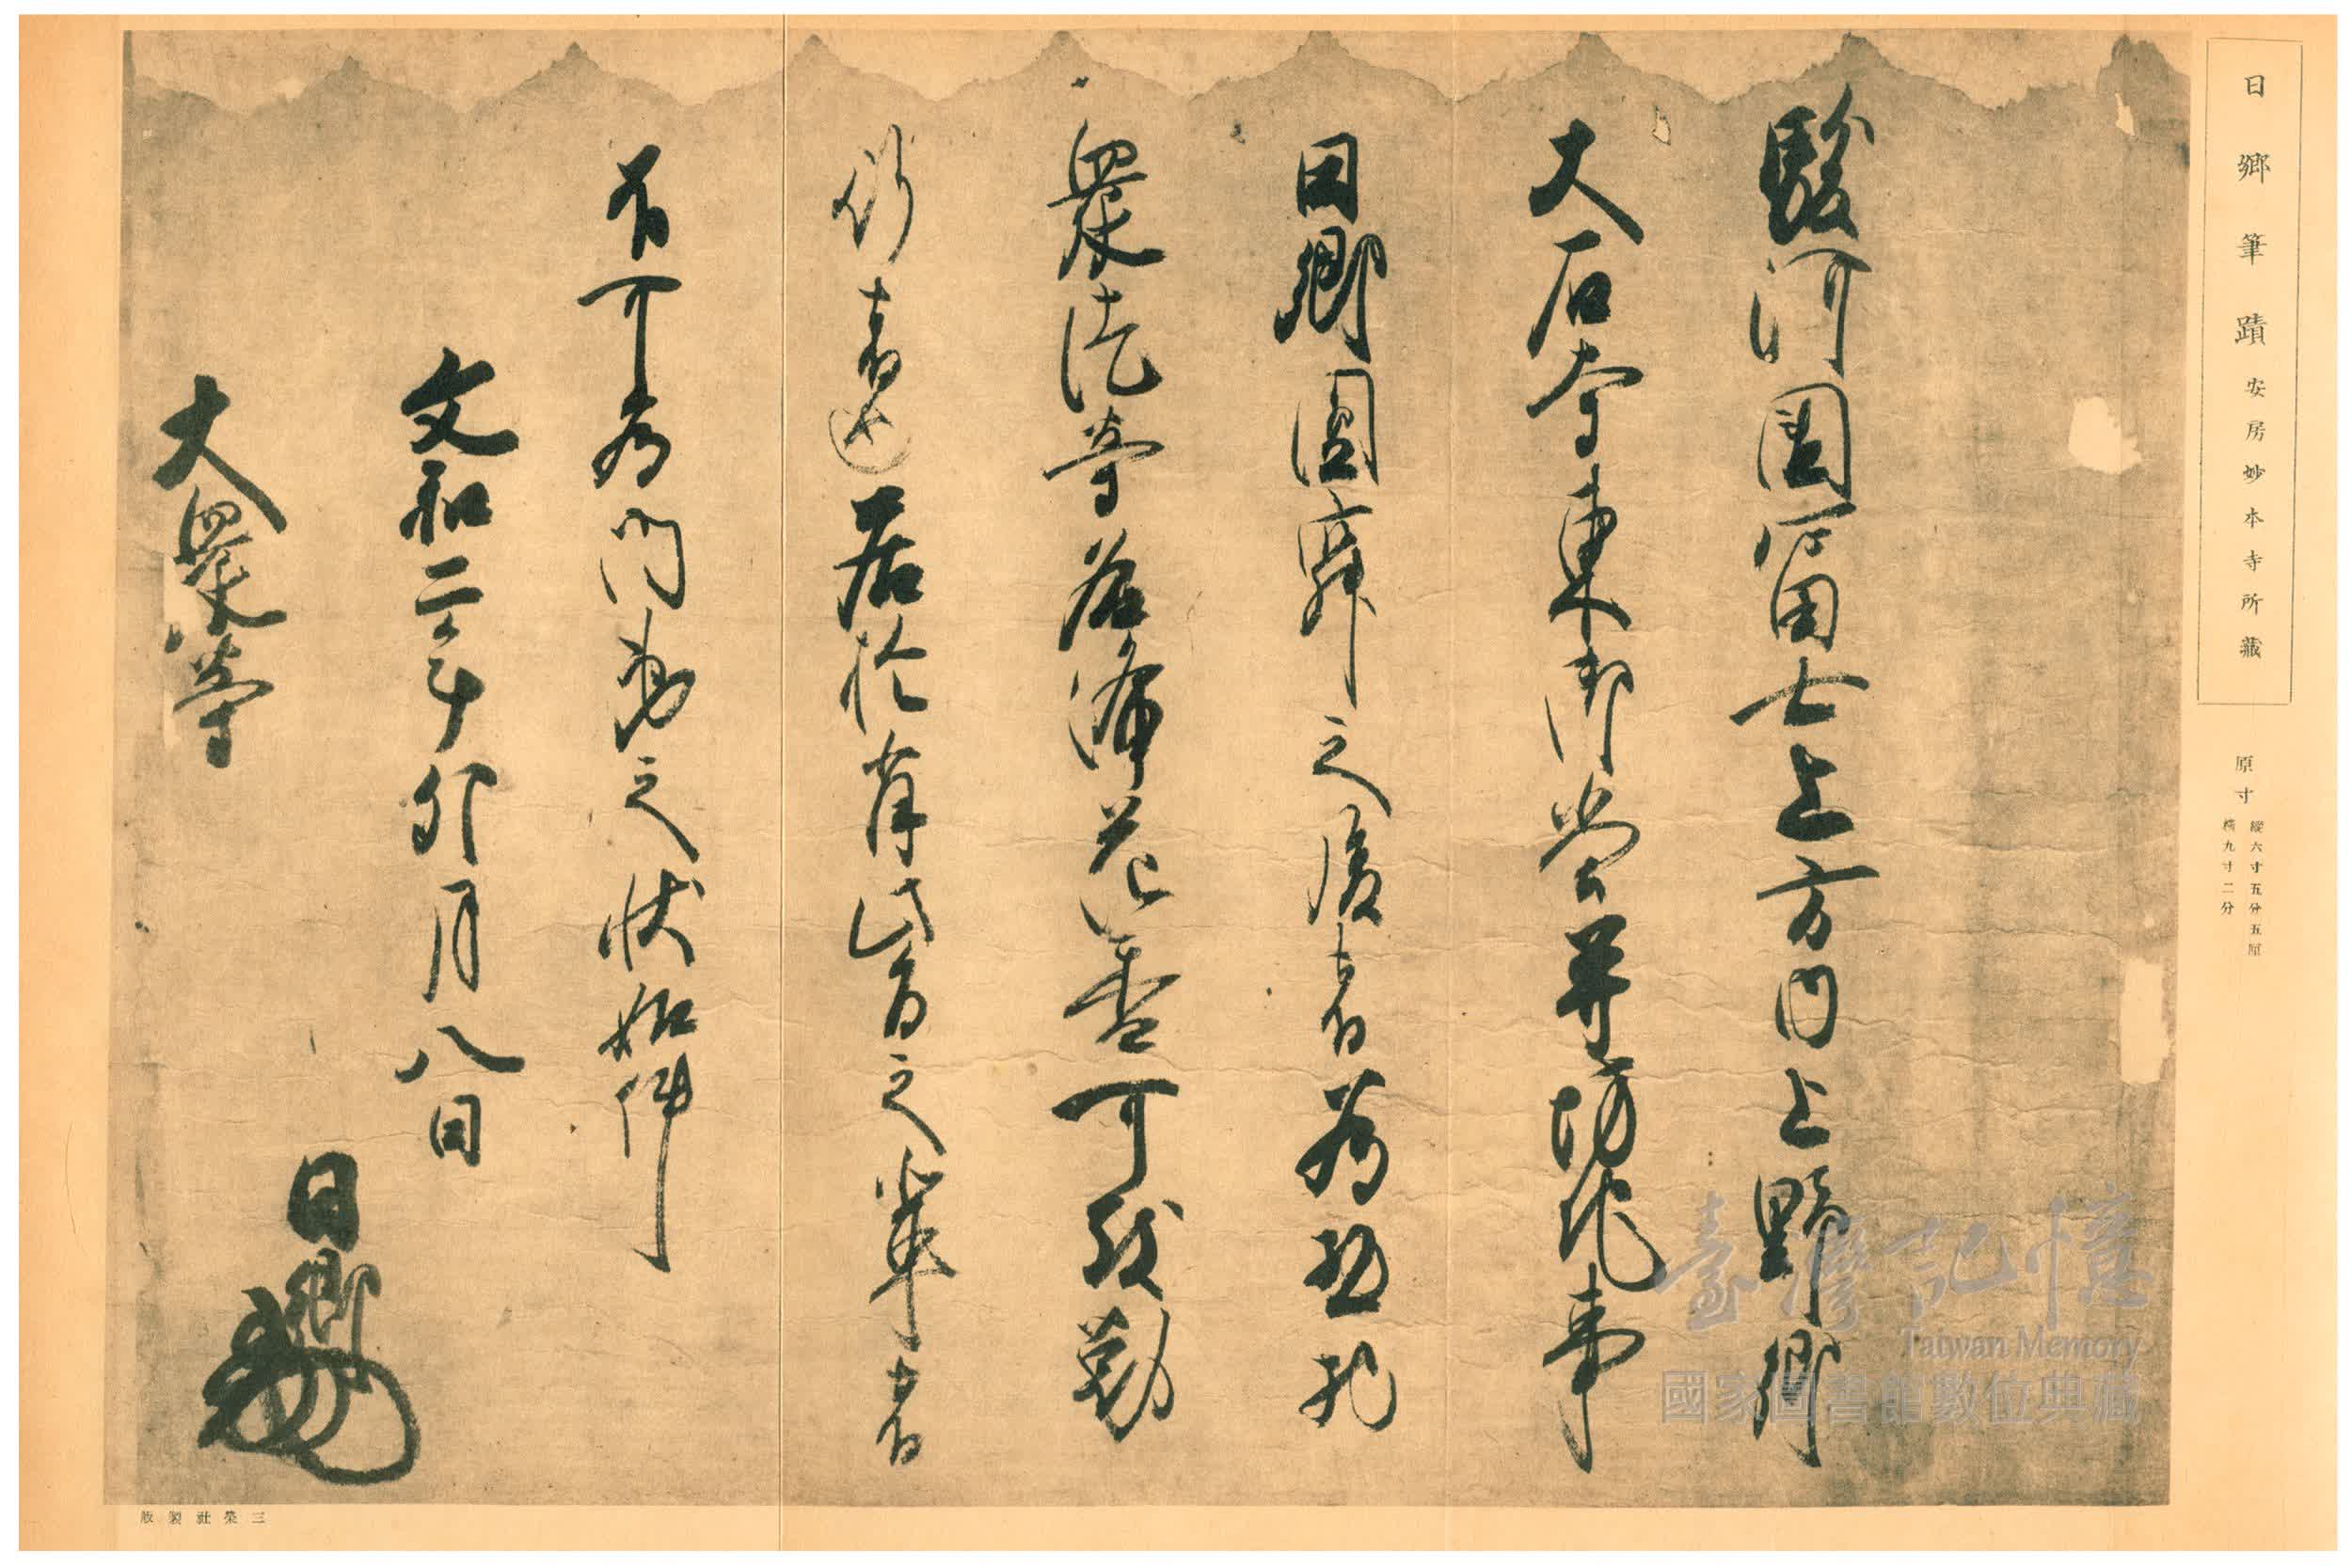 日鄕筆蹟 安房妙本寺所藏
原寸 縱六寸五分五厘
横九寸二分
駿河國富士上方内上野鄕
大石寺東御堂并坊地事
日鄕圓寂之後者爲
衆徒等 花香可致勤
行 於背此旨之輩者
不可爲門弟之状如件
文和二年卯月八日
日鄕
大衆等
三榮社製版
臺灣記憶
Taiwan Memory
國家圖書館數位典藏